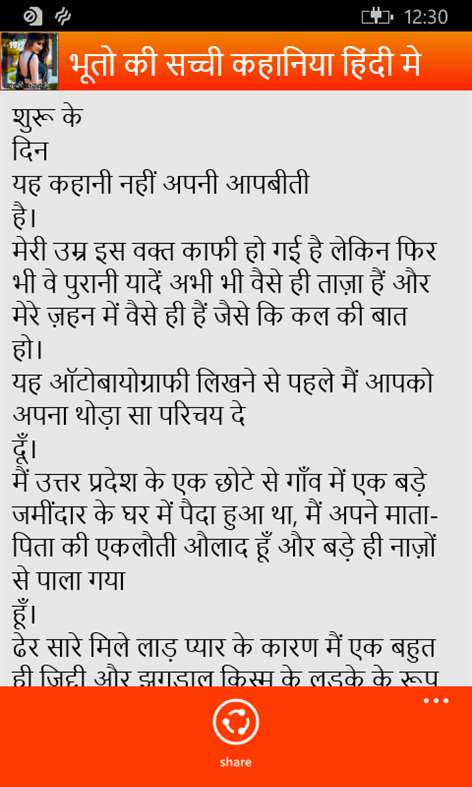 12:30
भूतो की सच्ची कहानिया हिंदी मे
शुरू के
दिन
यह कहानी नहीं अपनी आपबीती
है।
मेरी उम्र इस वक्त काफी हो गई है लेकिन फिर
भी वे पुरानी यादें अभी भी वैसे ही ताज़ा हैं और
मेरे ज़हन में वैसे ही हैं जैसे कि कल की बात
हो।
यह ऑटोबायोग्राफी लिखने से पहले मैं आपको
अपना थोड़ा सा परिचय दे
दूँ।
मैं उत्तर प्रदेश के एक छोटे से गाँव में एक बड़े
जमींदार के घर में पैदा हुआ था, मैं अपने माता-
पिता की एकलौती औलाद हूँ और बड़े ही नाज़ों
से पाला गया
हूँ।
ढेर सारे मिले लाड़ प्यार के कारण मैं एक बहुत
ही जिद्दी और झगड़ालू किस्म के लड़के के रूप
share